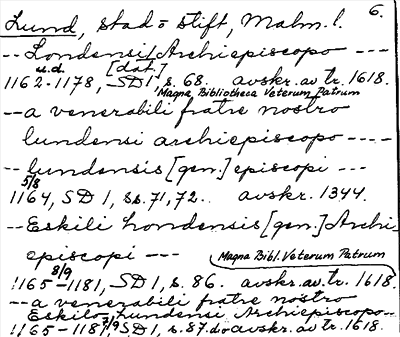 Lund, stad o stift, Malm. l. 6.
-- Londensi Archiepiscopo ----
u.d. [dat.]
1162-1178, SD 1 s. 68. avskr. av tr. 1618.
Magna Bibliotheca Veterum Patrum
-- a venerabili fratre nostro
lundensi archiepiscopo ----
-- lundensis [gen.] episcopi ---
5/8
1164, SD 1, ss. 71, 72. avskr. 1344.
-- Eskili Londensis [gen.] Archi-
episcopi --- Magna Bibl. Veterum Patrum
8/9
1165-1181, SD 1, s. 86. avskr. av tr. 1618.
-- a venerabili fratre nostro
Eskilo Lundensi Archiepiscopo --
1165-1181, SD 1, s. 87. do avskr. av tr. 1618.